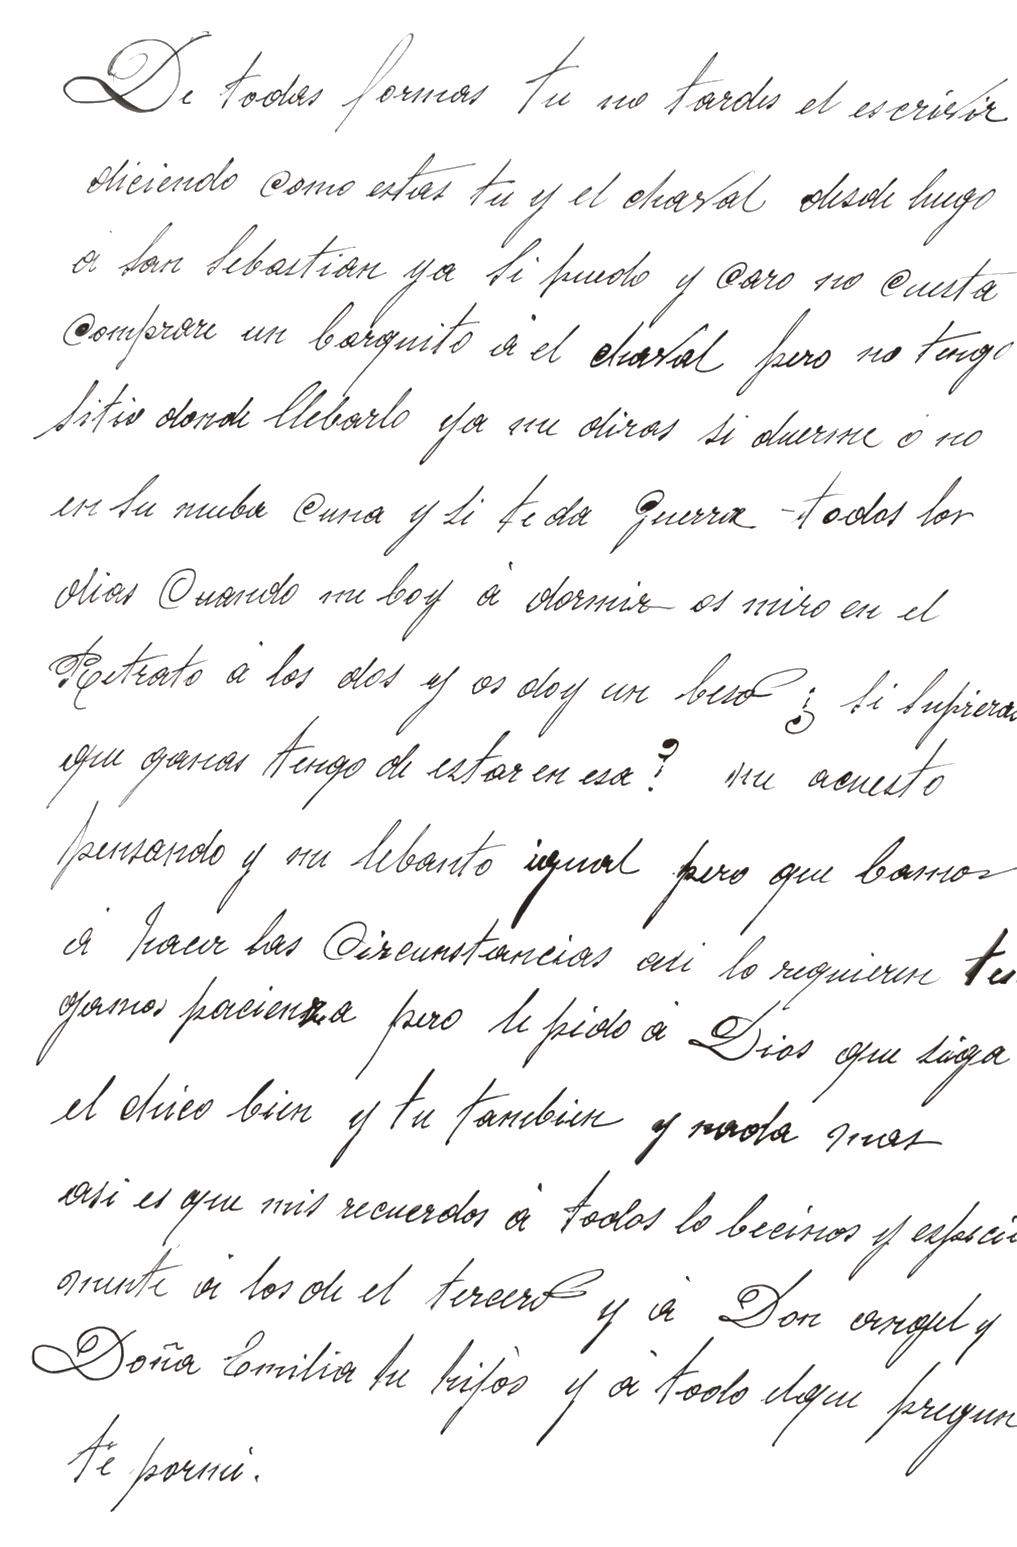 De todas formas tu no tardes el escrivir
diciendo como estas tu y el chaval desde luego
á San Sebastian ya si puedo y caro no cuesta
comprare un barquito á el chaval pero no tengo
sitio donde llebarlo ya me diras si duerme o no
en su nueba cuna y si te da guerra todos los
dias cuando me boy á dormir os miro en el
Retrato á los dos y os doy un beso ¿ si supieras
que ganas tengo de estar en esa? me acuesto
pensando y me lebanto igual pero que bamos
á hacer las circunstancias asi lo requieren ten
gamos pacienza pero le pido á Dios que siga
el chico bien y tu tambien y nada mas
asi es que mis recuerdos á todos lo becinos y especial
mente á los de el tercero y á Don angel y
Doña Emilia hijos y á todo el que pregun
te por mi.